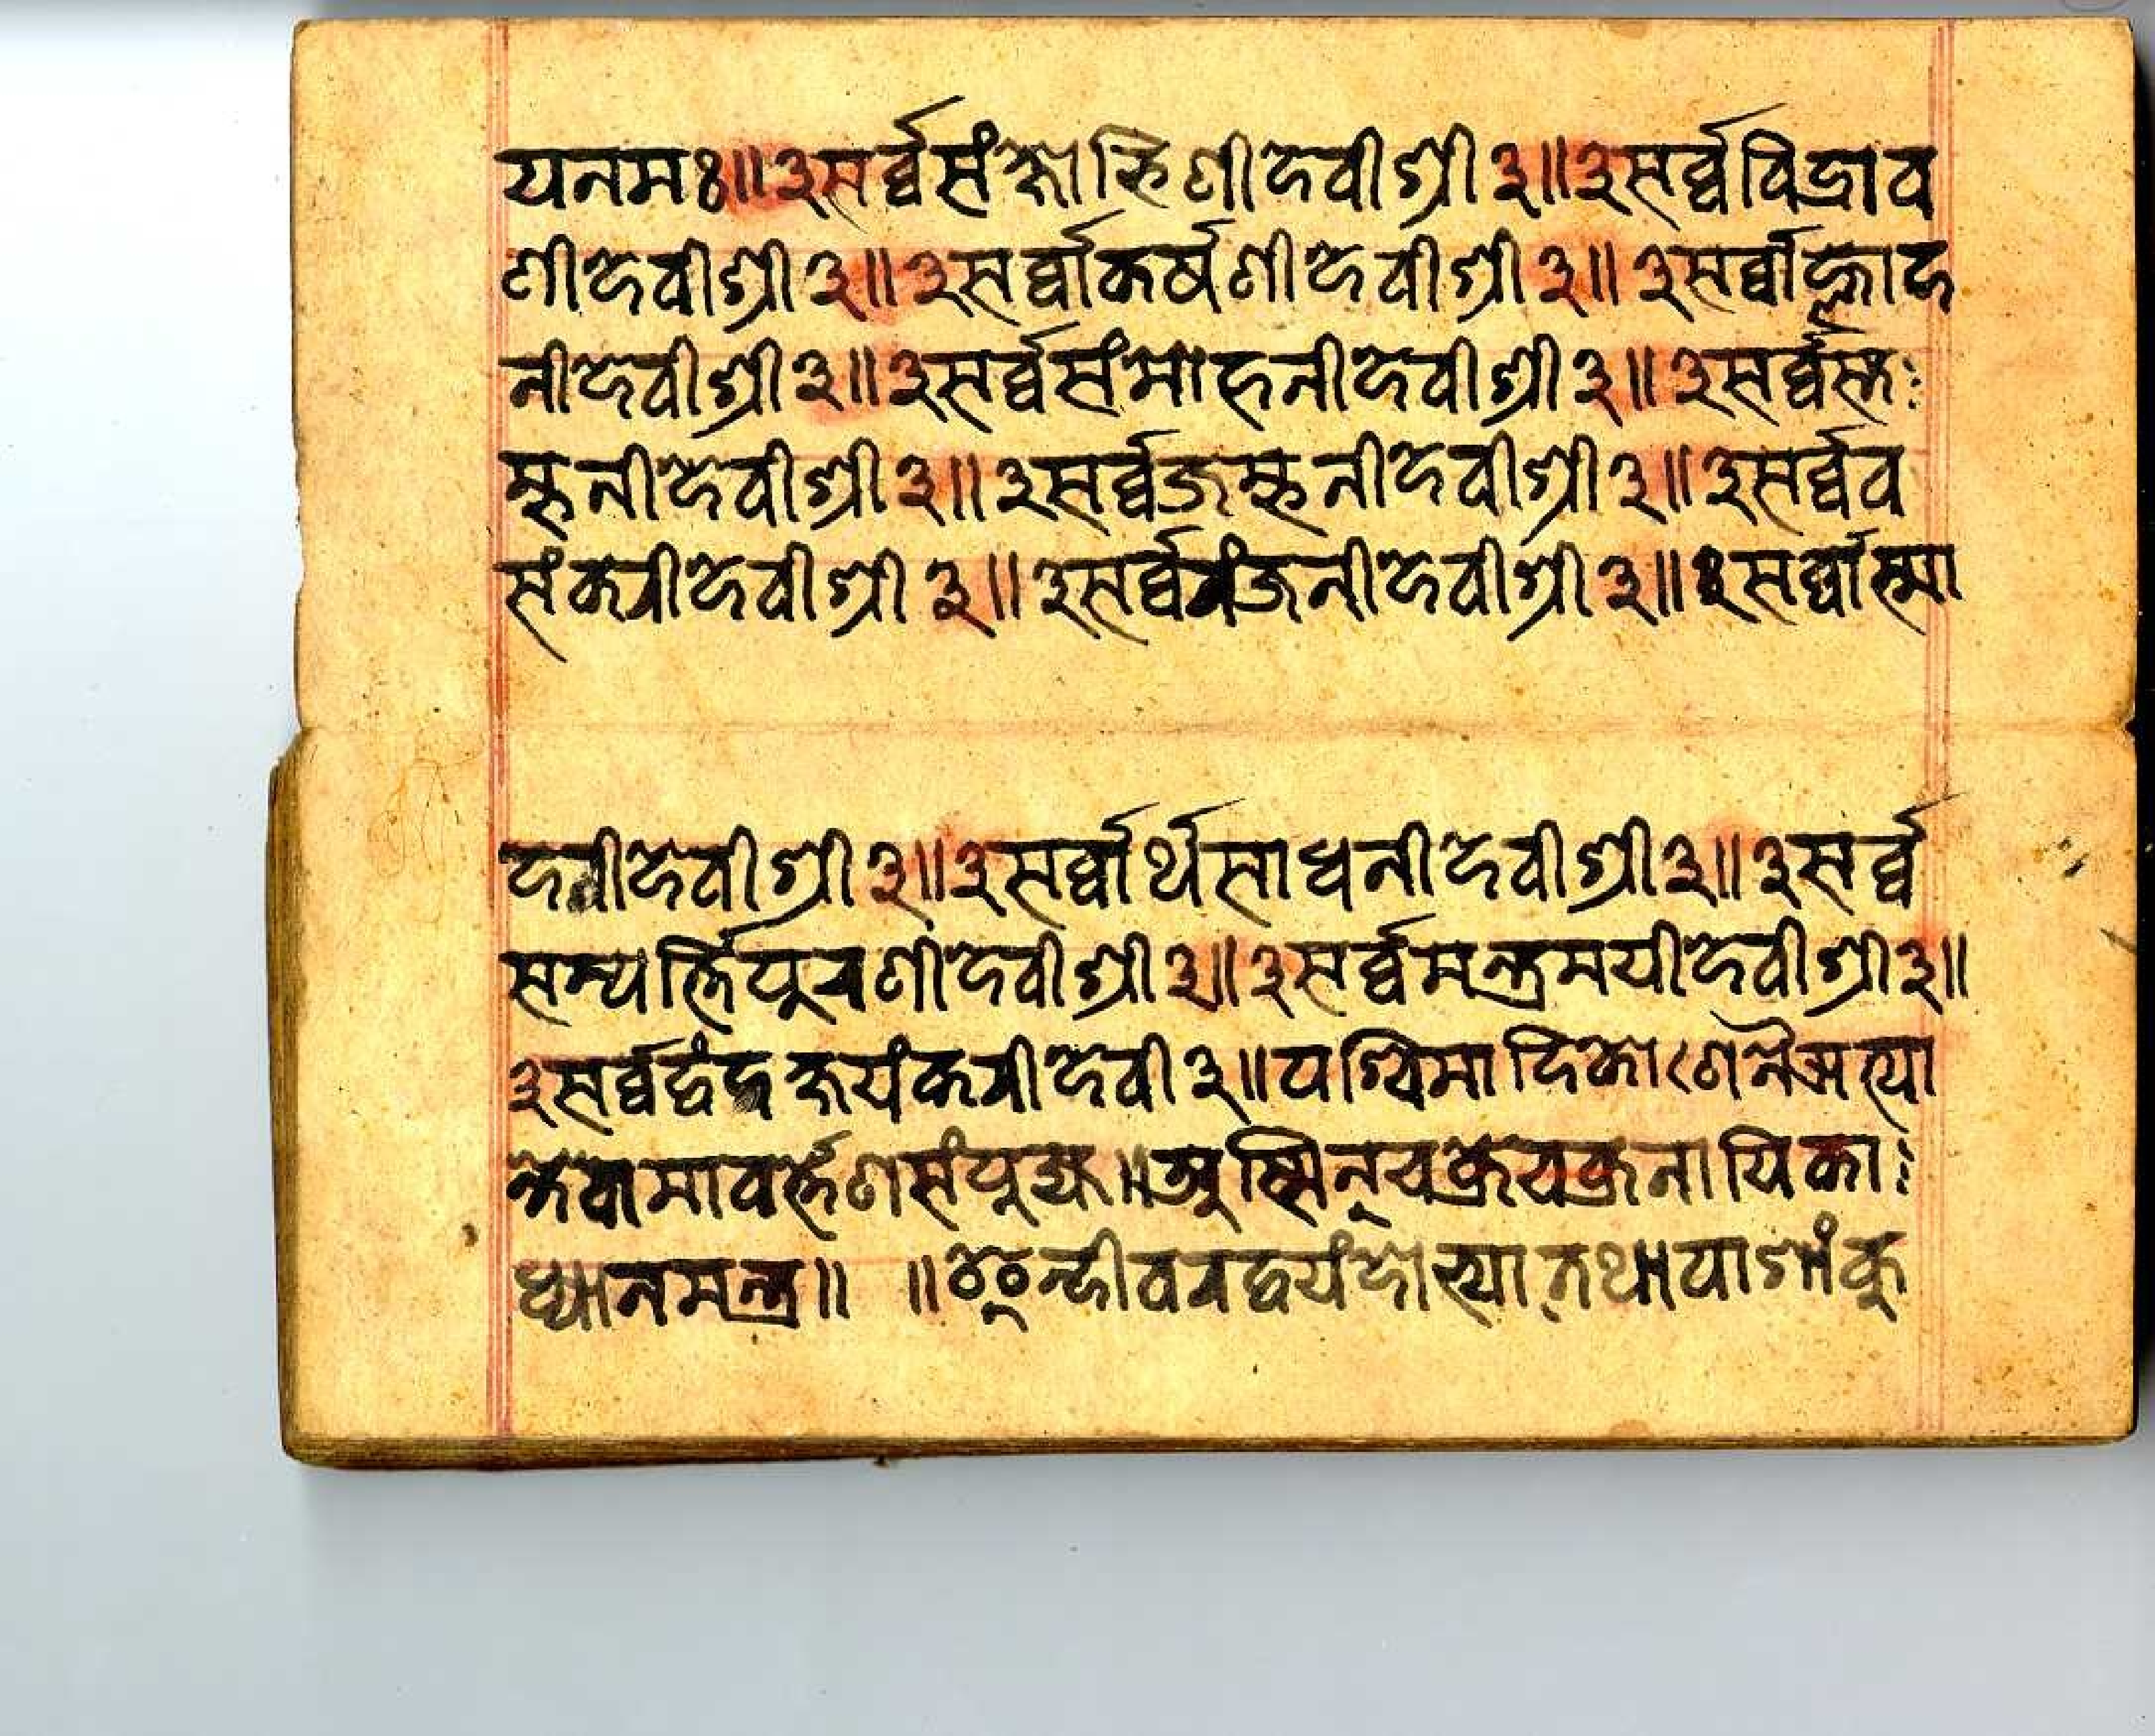 यनमः॥३सर्व्वसंक्षोभिणीदेवीश्री३॥३सर्व्वविद्राव
णीदेवीश्री३॥३सर्व्वाकर्षणीदेवीश्री३॥३सर्व्वाह्लाद
नीदेवीश्री३॥३सर्व्वसंमोहनीदेवीश्री३॥३सर्व्वस्त
म्भनीदेवीश्री३॥३सर्व्वजम्भनीदेवीश्री३॥३सर्व्वव
संकरीदेवीश्री३॥३सर्व्वरंजनीदेवीश्री३॥३सर्व्वोन्मा
दनीदेवीश्री३॥३सर्व्वार्थसाधनीदेवीश्री३॥३सर्व्व
सम्पर्त्तिपूरणीदेवीश्री३॥३सर्व्वमन्त्रमयीदेवीश्री३॥
३सर्व्वद्वंदक्षयंकरीदेवी३॥पश्चिमादिकोणेनैऋत्या
न्तंवामावर्त्तेणसंपूज्य॥अस्मिन्चक्रेचक्रनायिका
ध्यानमन्त्र॥ ॥ॐन्दीवरद्वयंदोर्भ्यातथापाशांकु